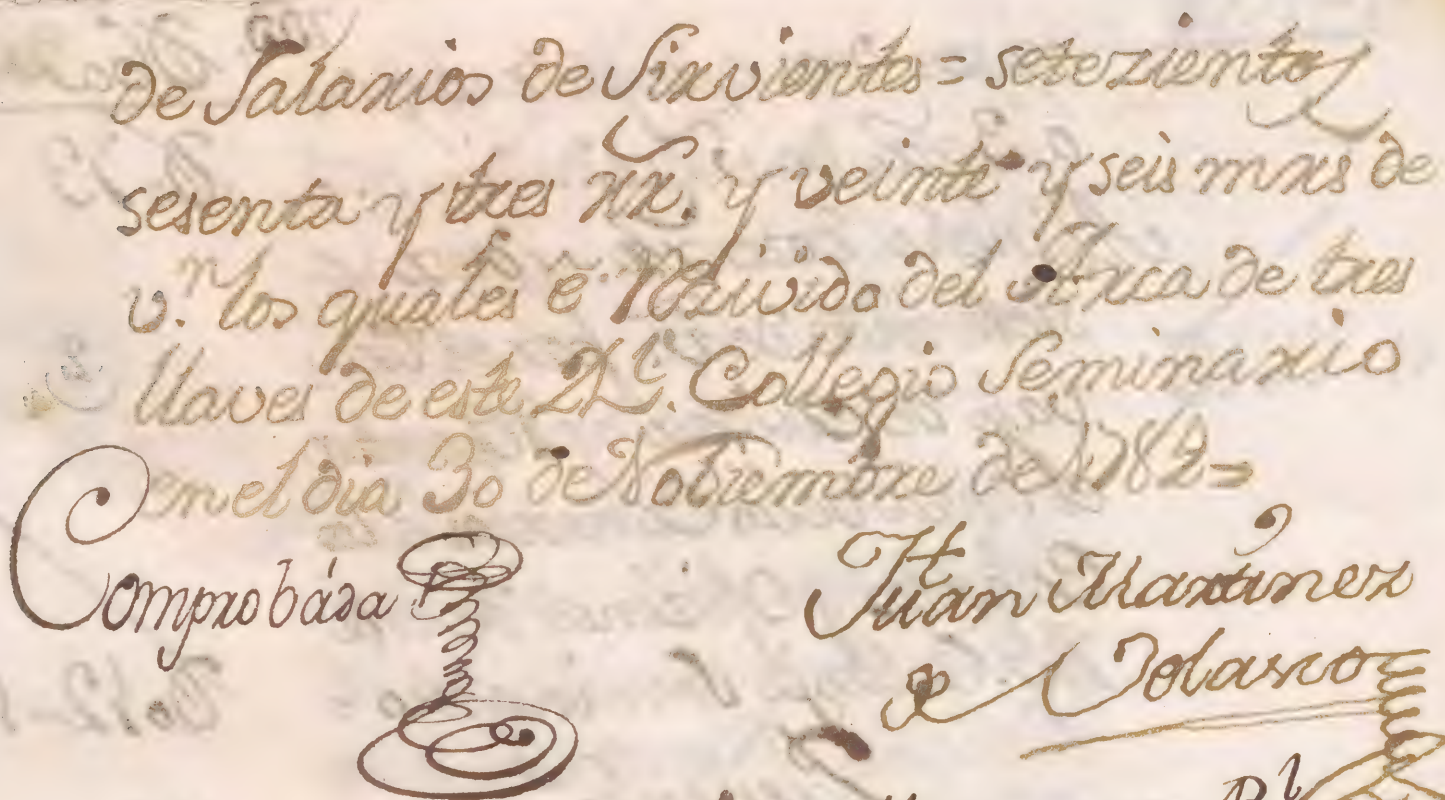 de Salarios de Sirvientes = setezientos
sesenta y tres rr. y veinte y seis mrs de
v.n los quales e Rezivido del Arca de tres
llaves de este Rl. Collegio Seminario
en el dia 30 de Nobiembre de 1782=
Comprobáda
Juan Martinez
de Velasco